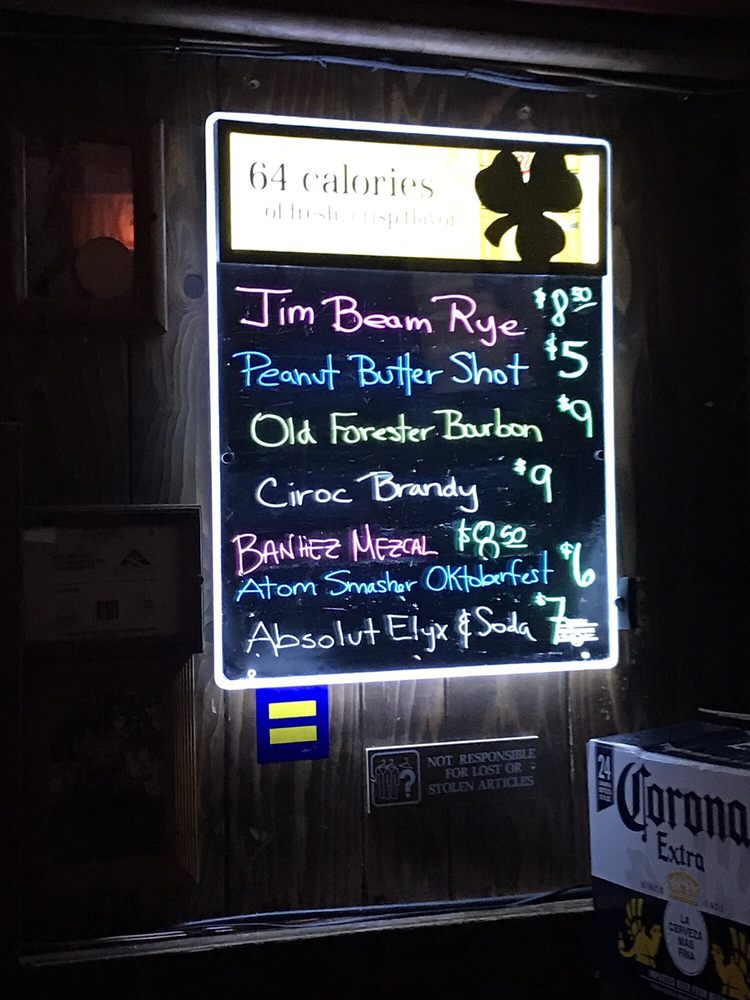 64 calories
of fresh, crisp flavor
Jim Beam Rye $8.50
Peanut Butter Shot $5
Old Forester Bourbon $9
Ciroc Brandy $9
BANHEZ MEZCAL $8.50
Atom Smasher Oktoberfest $6
Absolut Elyx & Soda $7
NOT RESPONSIBLE
FOR LOST OR
STOLEN ARTICLES
24
Corona
Extra
SINCE 1925
LA
CERVEZA
MAS
FINA